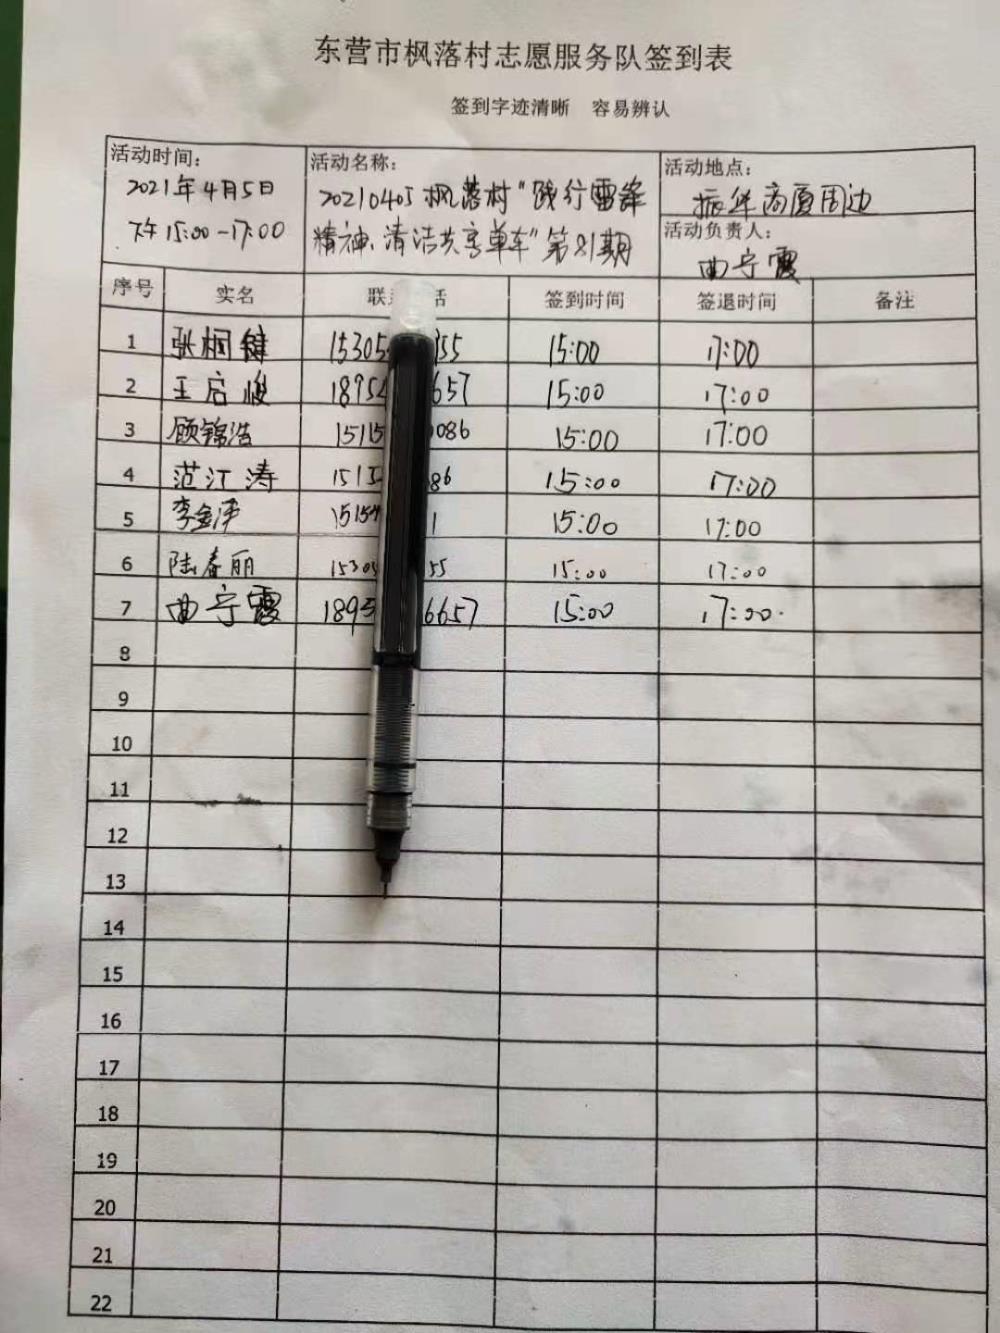 东营市枫落村志愿服务队签到表
签到字迹清晰 容易辨认
活动时间：
2021年4月5日
下午15:00-17:00
活动名称：
20210405枫落村"践行雷锋
精神、清洁共享单车"第81期
活动地点：
振华商厦周边
活动负责人：
曲宁霞
序号 实名 联 话 签到时间 签退时间 备注
1 张桐键 15305 55 15:00 17:00
2 王启峻 1895 657 15:00 17:00
3 顾锦浩 1515 086 15:00 17:00
4 范江涛 1515 86 15:00 17:00
5 李 15154 1 15:00 17:00
6 陆春丽 15305 55 15:00 17:00
7 曲宁霞 1895 6657 15:00 17:00
8
9
10
11
12
13
14
15
16
17
18
19
20
21
22